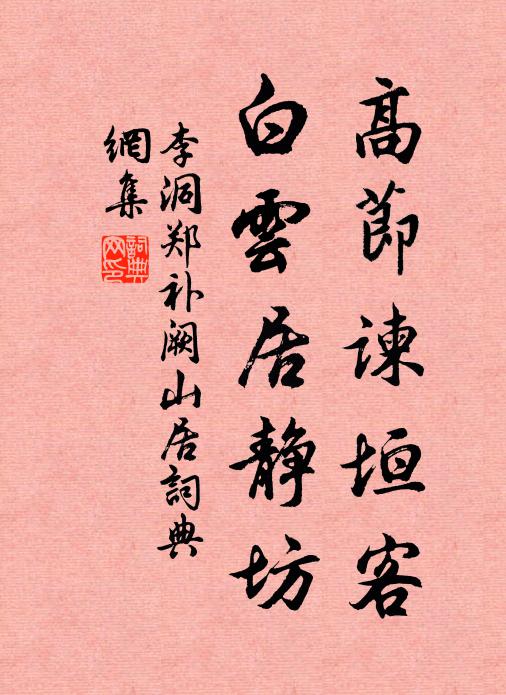 高節諫垣客
白雲居靜坊
李洞郑补阙山居詞典
網集
詞典
网印